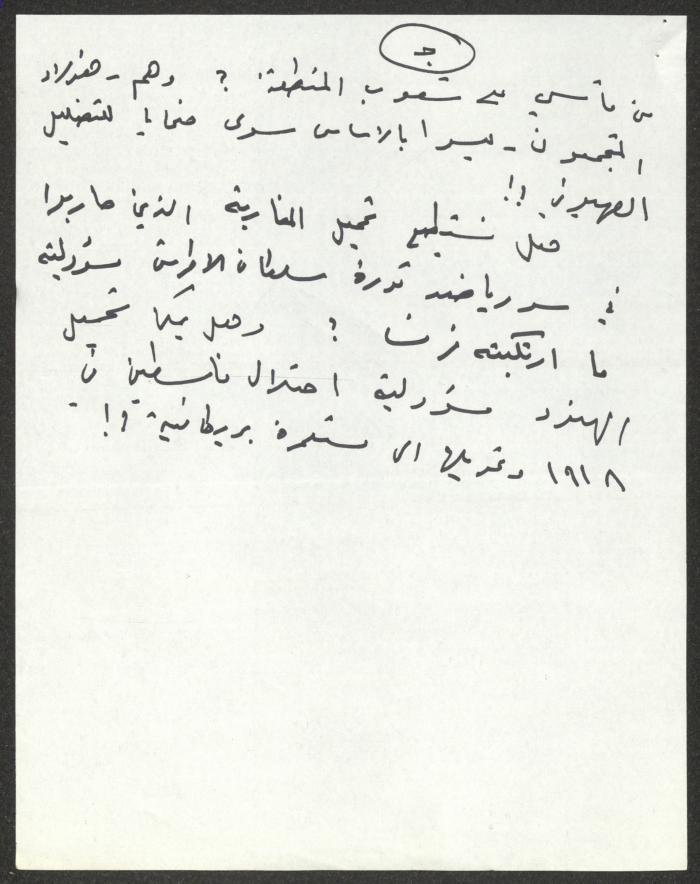 جـ
من مآسي على شعوب المنطقة؟ وهم - هؤلاء
المتجمعون - ليسوا بالأساس سوى ضحايا للتضليل
الصهيوني؟!
هل نستطيع تحميل المغاربة الذين حاربوا
في سوريا ضد ثورة سلطان الأطرش مسؤولية
ما ارتكبته فرنسا؟ وهل يمكن تحميل
الهنود مسؤولية احتلال فلسطين في
١٩١٨ وتحويلها الى مستعمرة بريطانية؟!